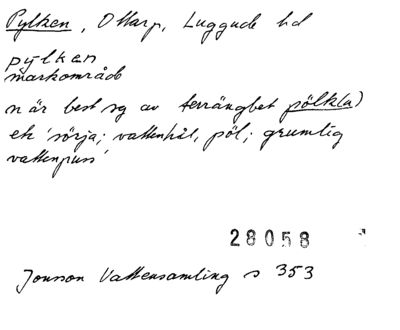 Pylken, Ottarp, Luggude hd
pylken
markområde
n är best sg av terrängbet pölk(la)
etc 'sörja; vattenhål, pöl; grumlig
vattenpuss'
28058
Jonsson Vattensamling s 353